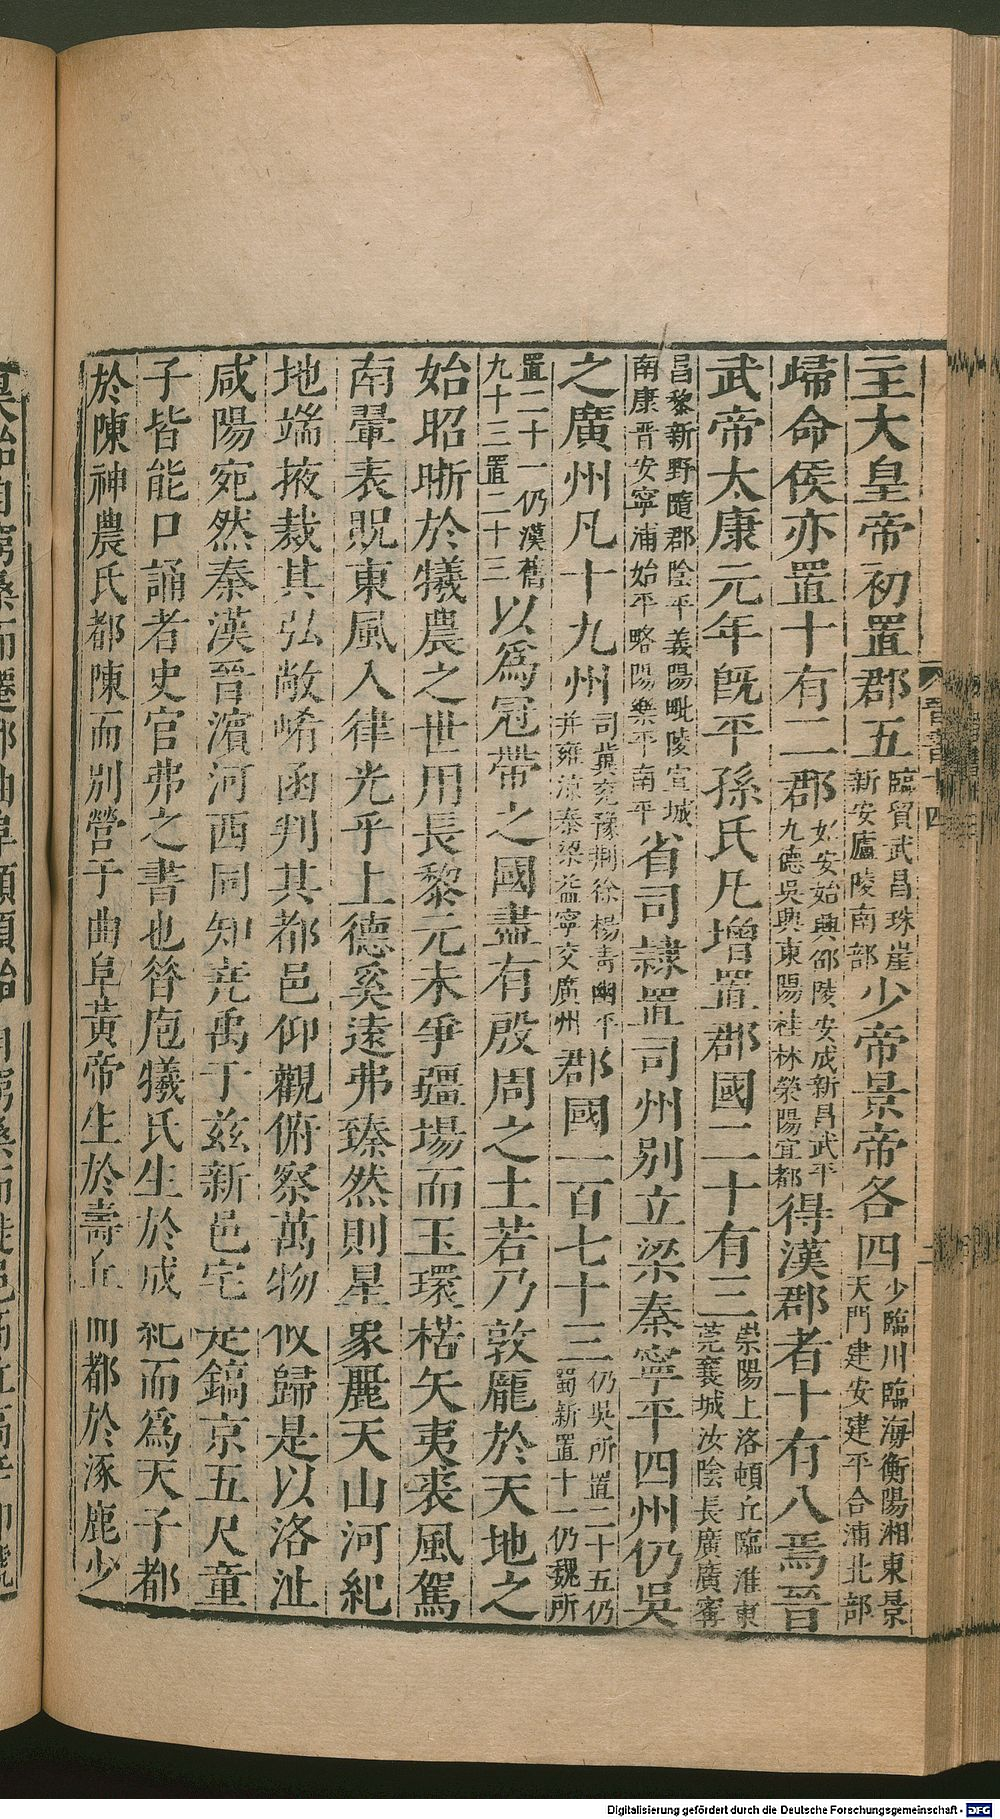 主大皇帝初置郡五臨賀武昌珠崖新安廬陵南部少帝景帝各四少臨川臨海衡陽湘東景天門建安建平合浦北部
歸命侯亦置十有二郡始安始興邵陵安成新昌武平九德吳興東陽桂林滎陽宜都得漢郡者十有八焉晉
武帝太康元年旣平孫氏凡增置郡國二十有三滎陽上洛頓丘臨淮東莞襄城汝陰長廣廣寗
昌黎新野隨郡陰平義陽毗陵宣城南康晋安寧浦始平略陽樂平南平省司隷置司州别立梁秦寧平四州仍吳
之廣州凡十九州司冀兗豫荆徐楊青幽平并雍凉秦梁益寧交廣州郡國一百七十三仍吳所置二十五仍蜀新置十一仍魏所
置二十一仍漢舊九十三置二十三以爲冠帶之國盡有殷周之土若乃敦龐於天地之
始昭晣於犧農之世用長黎元未爭疆場而玉環楛矢夷裘風駕
南翬表貺東風入律光乎上德奚遠弗臻然則星象麗天山河紀
地端掖裁其弘敞崤函判其都邑仰觀俯察萬物攸歸是以洛沚
咸陽宛然秦漢晉濵河西同知堯禹于兹新邑宅是鎬京五尺童
子皆能口誦者史官弗之書也昝庖犧氏生於成紀而爲天子都
於陳神農氏都陳而别營于曲阜黃帝生於壽丘而都於涿鹿少
晉書十四
二
Digitalisierung gefördert durch die Deutsche Forschungsgemeinschaft - DFG